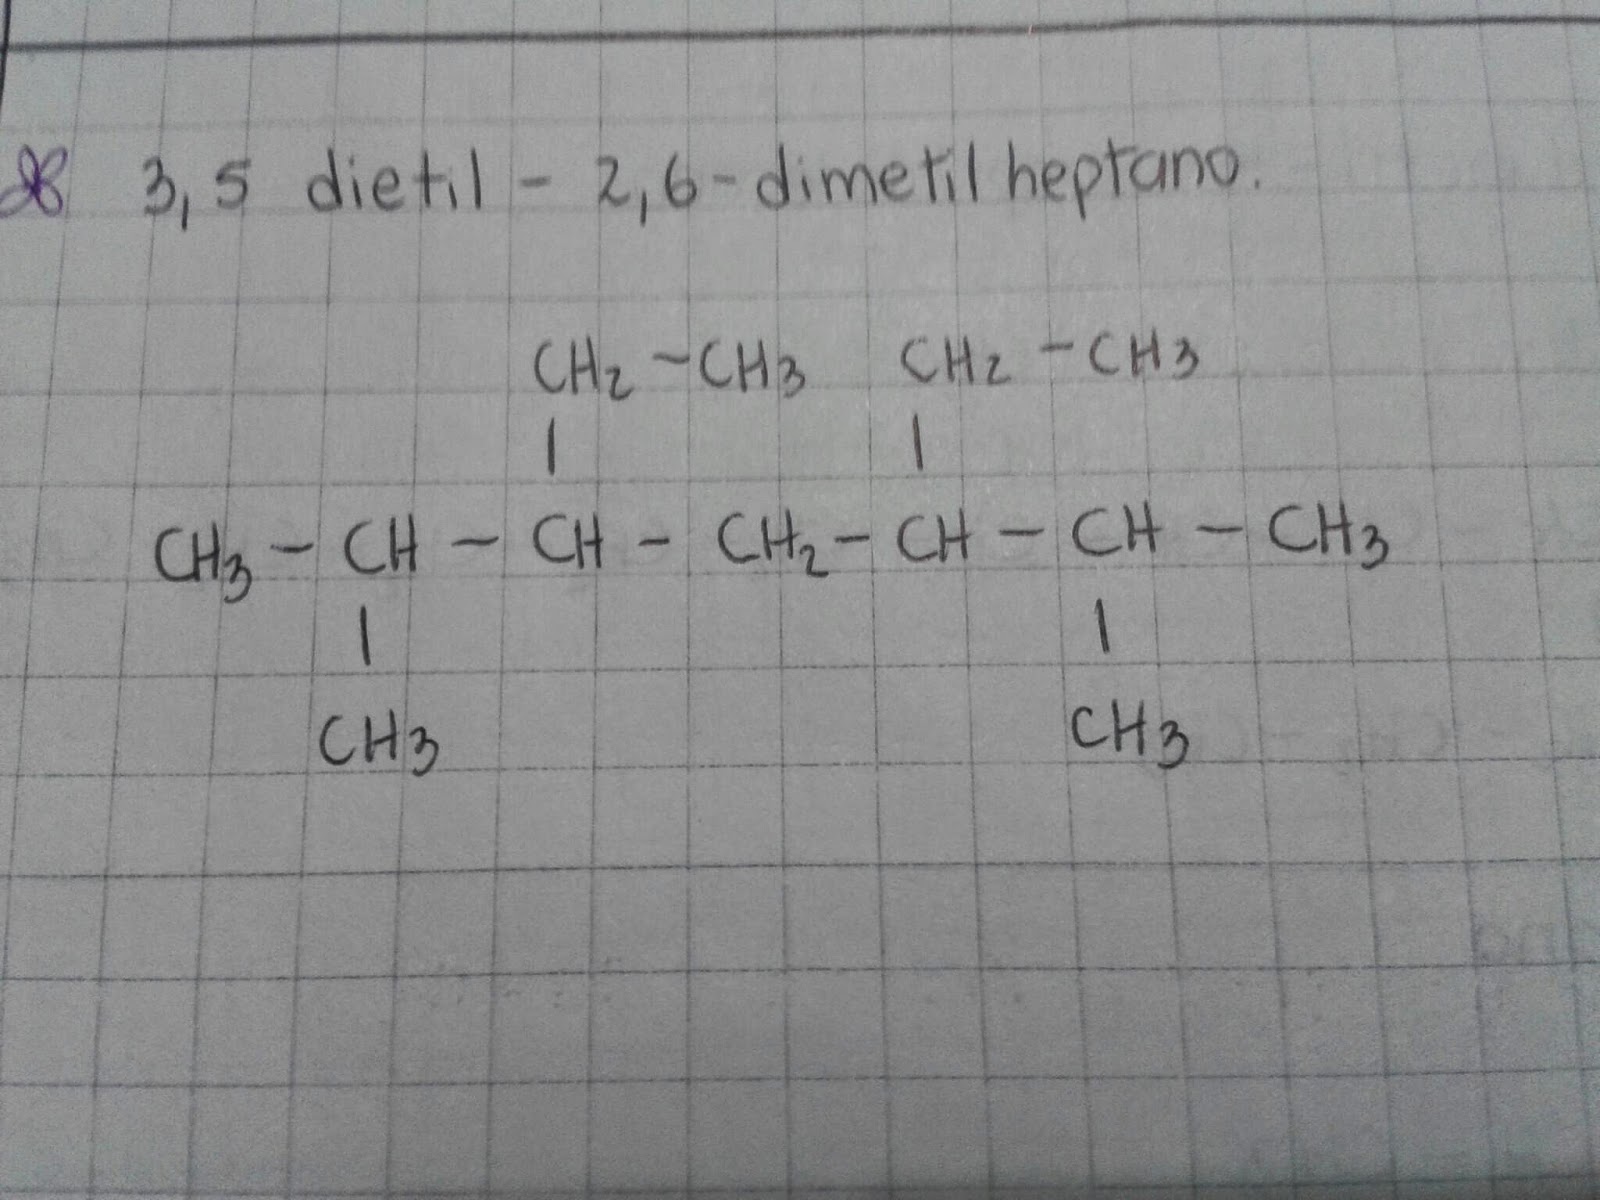 3,5 dietil - 2,6-dimetil heptano.
CH2 - CH3 CH2 - CH3
| |
CH3 - CH - CH - CH2 - CH - CH - CH3
| |
CH3 CH3